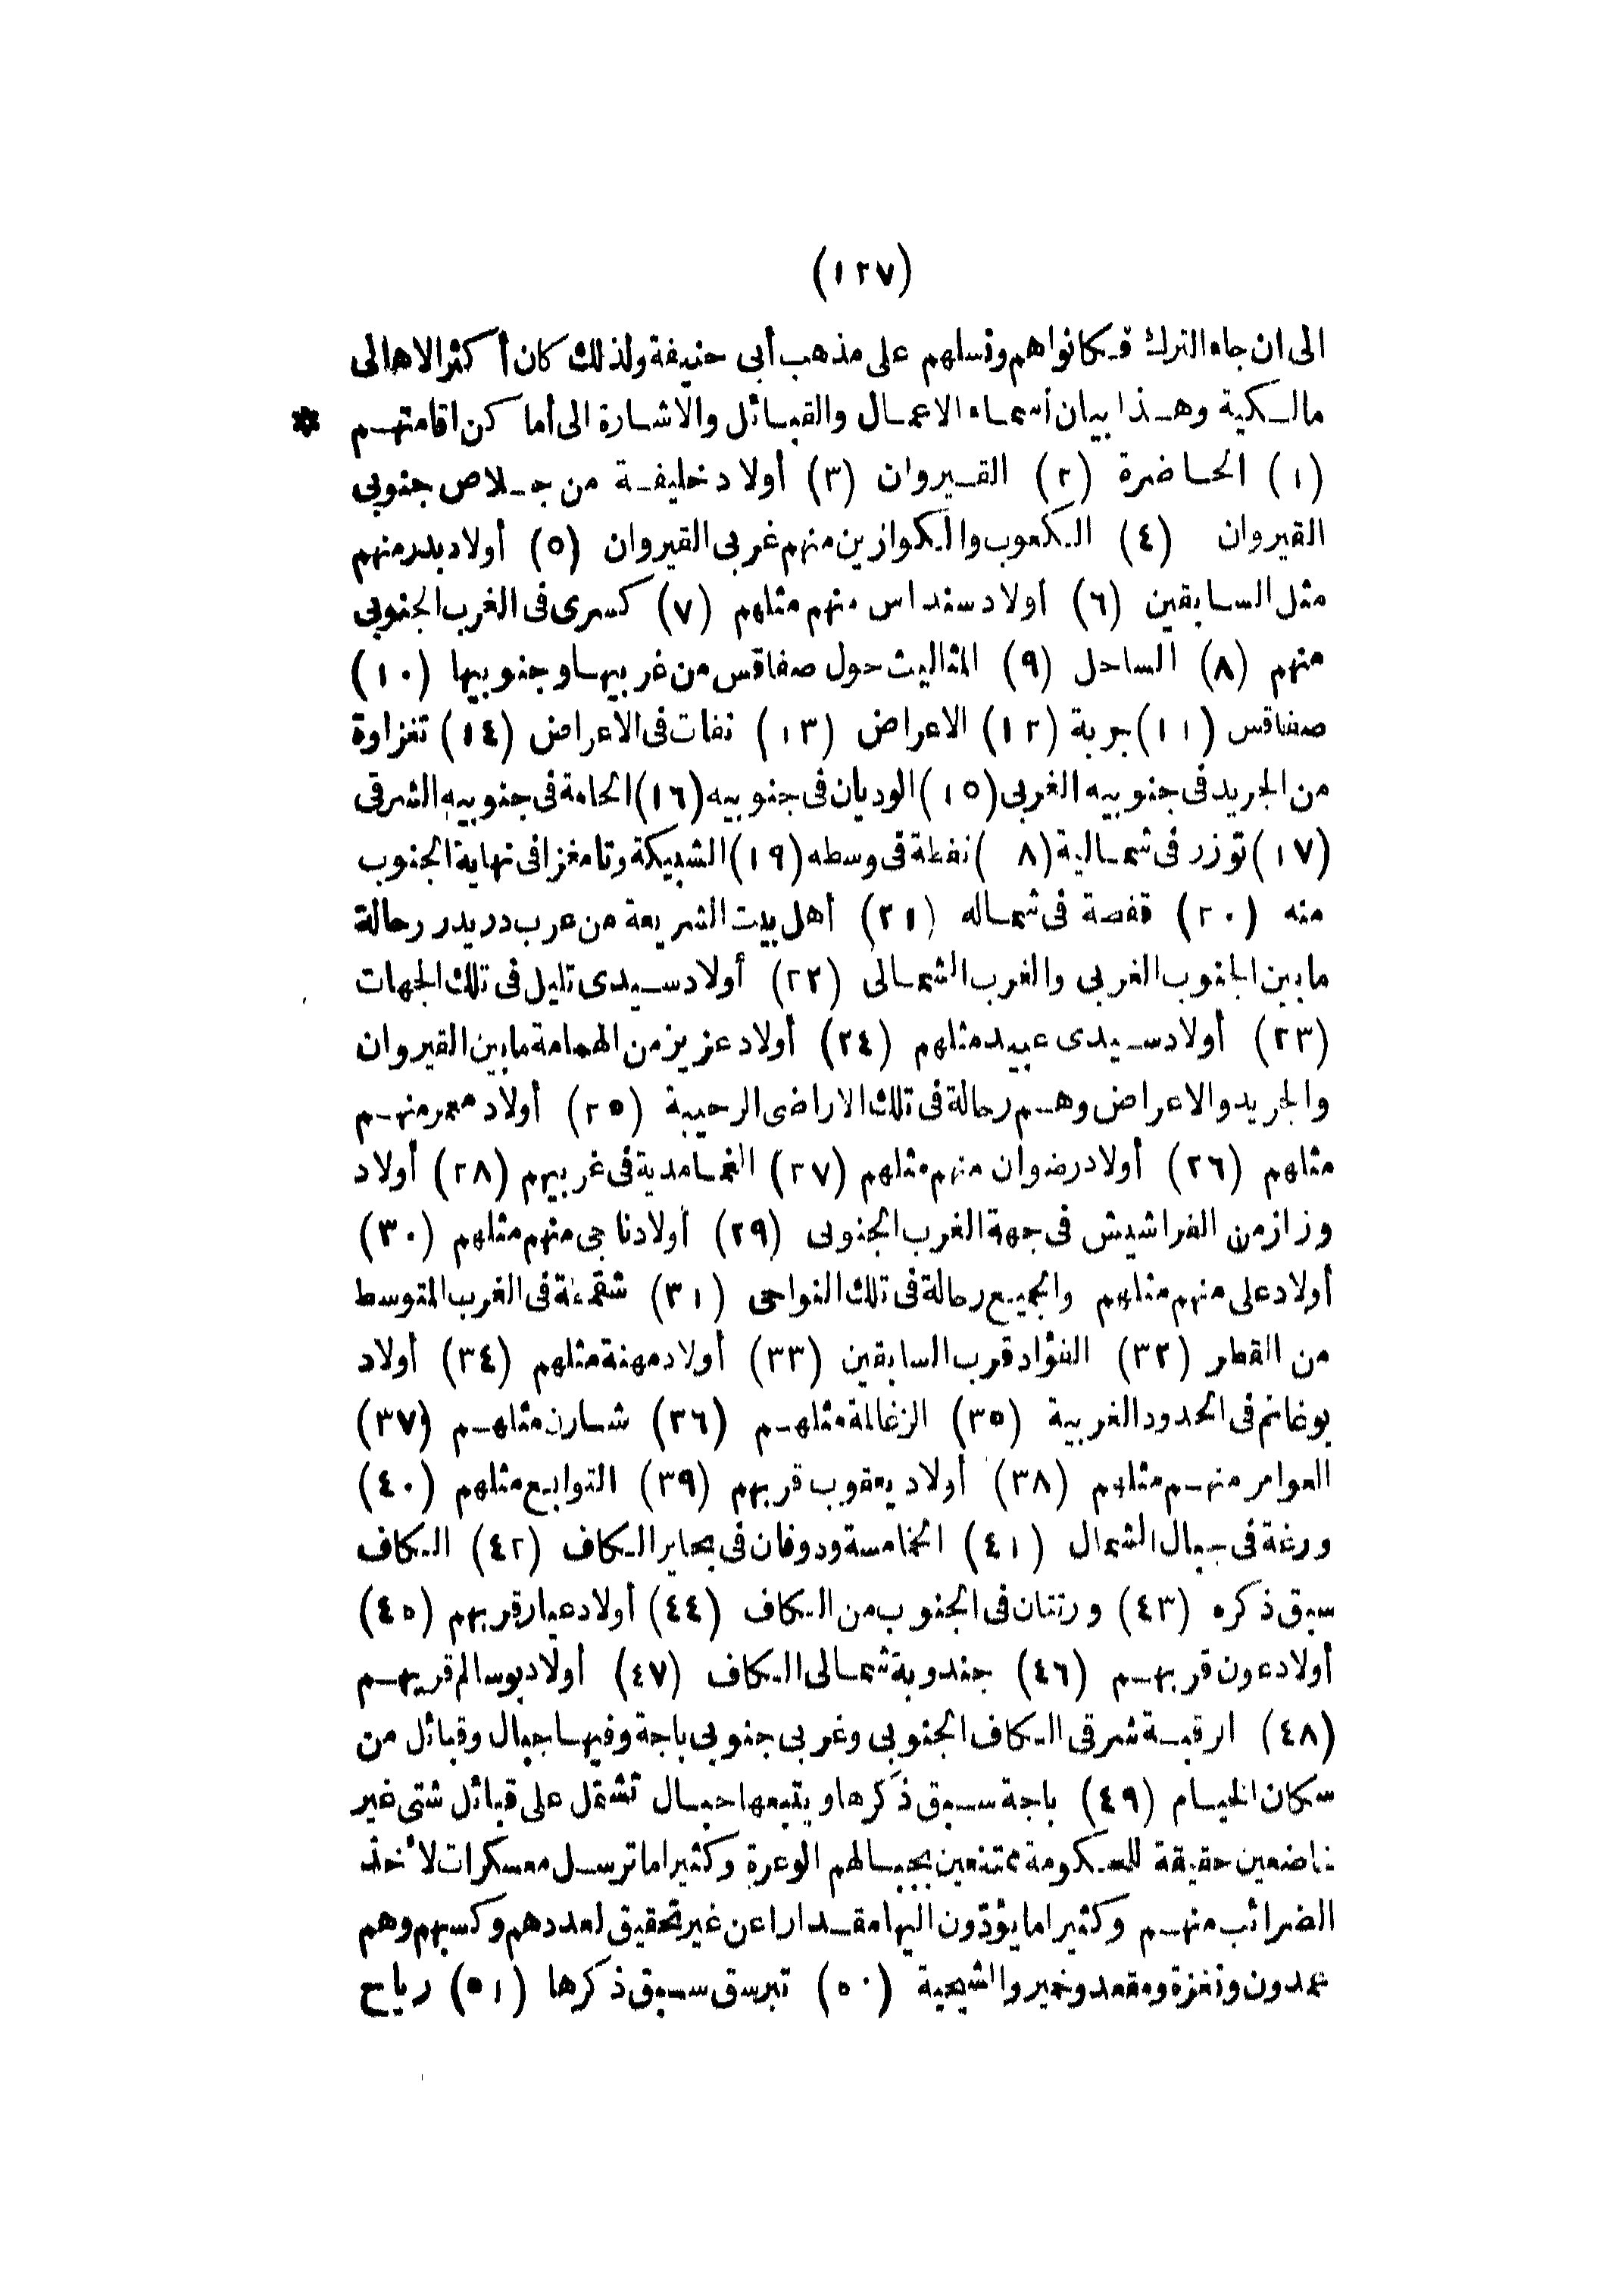 (١٢٧)
الى ان جاء الترك فكانوا هم ونسلهم على مذهب أبى حنيفة ولذلك كان أكثر الاهالى
مالكية وهذا بيان أسماء الاعمال والقبائل والاشارة الى أماكن اقامتهم *
(١) الحاضرة (٢) القيروان (٣) أولاد خليفة من جلاص جنوبى
القيروان (٤) الكعوب والكوازين منهم غربى القيروان (٥) أولاد يدير منهم
مثل السابقين (٦) أولاد سنداس منهم مثلهم (٧) كسرى فى الغرب الجنوبى
منهم (٨) الساحل (٩) المثاليث حول صفاقس من غربيها وجنوبيها (١٠)
صفاقس (١١) جربة (١٢) الاعراض (١٣) نفات فى الاعراض (١٤) نغزاوة
من الجريد فى جنوبيه الغربى (١٥) الوديان فى جنوبيه (١٦) الحامة فى جنوبيه الشرقى
(١٧) توزر فى شمالية (٨ ) نفطة فى وسطه (١٩) الشبيكة وتامغزا فى نهاية الجنوب
منه (٢٠) قفصة فى شماله (٢١) أهل بيت الشريعة من عرب دريد رحالة
ما بين الجنوب الغربى والغرب الشمالى (٢٢) أولاد سيدى تليل فى تلك الجهات
(٢٣) أولاد سيدى عبيد مثلهم (٢٤) أولاد عزيز من الهمامة ما بين القيروان
والجريد والاعراض وهم رحالة فى تلك الاراضى الرحيبة (٢٥) أولاد معمر منهم
مثلهم (٢٦) أولاد رضوان منهم مثلهم (٢٧) الغمامدية فى غربيهم (٢٨) أولاد
وزاز من الفراشيش فى جهة الغرب الجنوبى (٢٩) أولاد ناجى منهم مثلهم (٣٠)
أولاد على منهم مثلهم والجميع رحالة فى تلك النواحى (٣١) شقمة فى الغرب المتوسط
من القطر (٣٢) الفؤاد قرب السابقين (٣٣) أولاد مهنة مثلهم (٣٤) أولاد
بوغانم فى الحدود الغربية (٣٥) الزغالمة مثلهم (٣٦) شارن مثلهم (٣٧)
العوامر منهم مثلهم (٣٨) أولاد يعقوب قربهم (٣٩) التوابع مثلهم (٤٠)
ورغة فى جبال الشمال (٤١) الخمامسة ودوفان فى مجاير الكاف (٤٢) الكاف
سبق ذكره (٤٣) ورتتان فى الجنوب من الكاف (٤٤) أولاد عيار قربهم (٤٥)
أولاد عون قربهم (٤٦) جندوبة شمالى الكاف (٤٧) أولاد بوسالم قربهم
(٤٨) الرقبة شرقى الكاف الجنوبى وغربى جنوبى باجة وفيها جبال وقبائل من
سكان الخيام (٤٩) باجة سبق ذكرها ويتبعها جبال تشتمل على قبائل شتى غير
خاضعين حقيقة للحكومة ممتنعين بجبالهم الوعرة وكثيرا ما ترسل معسكرات لأخذ
الضرائب منهم وكثيرا ما يؤدّون اليها مقدارا عن غير تحقيق لعددهم وكسبهم وهم
عمدون ونغزة ومقعد وخمير والشيحية (٥٠) تبرسق سبق ذكرها (٥١) رياح